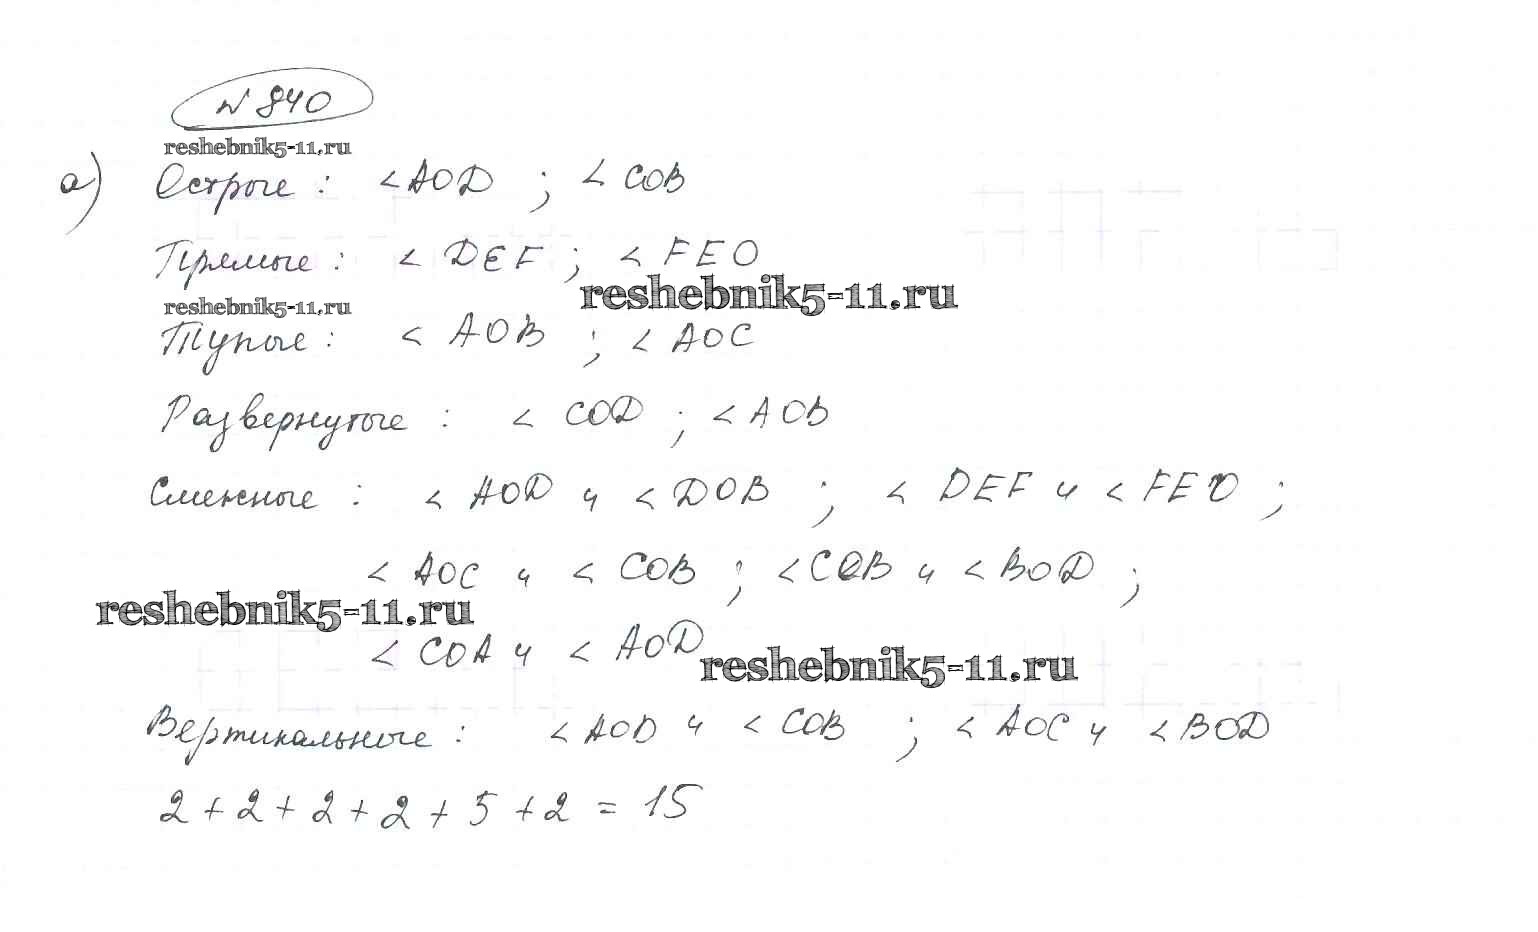 № 840
reshebnik5-11.ru
а) Острые : <AOD ; <COB
Прямые : <DEF ; <FEO
reshebnik5-11.ru
reshebnik5-11.ru
Тупые : <AOB ; <AOC
Развернутые : <COD ; <AOB
Смежные : <AOD и <DOB ; <DEF и <FEO ;
<AOC и <COB ; <COB и <BOD ;
reshebnik5-11.ru
<COA и <AOD
reshebnik5-11.ru
Вертикальные : <AOD и <COB ; <AOC и <BOD
2 + 2 + 2 + 2 + 5 + 2 = 15